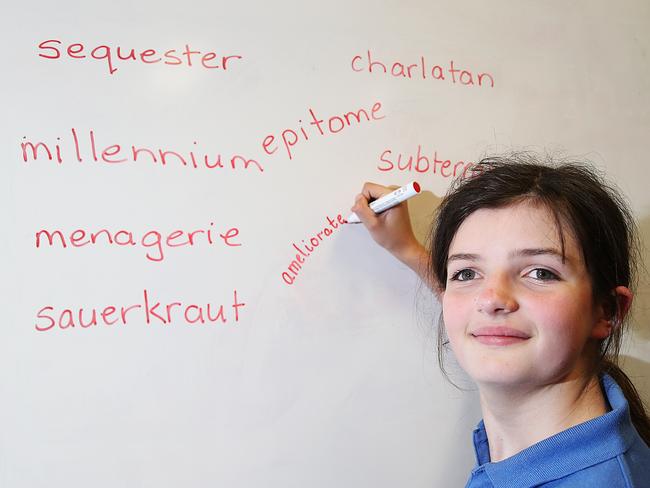 sequester
charlatan
millennium
epitome
subterr
menagerie
ameliorate
sauerkraut